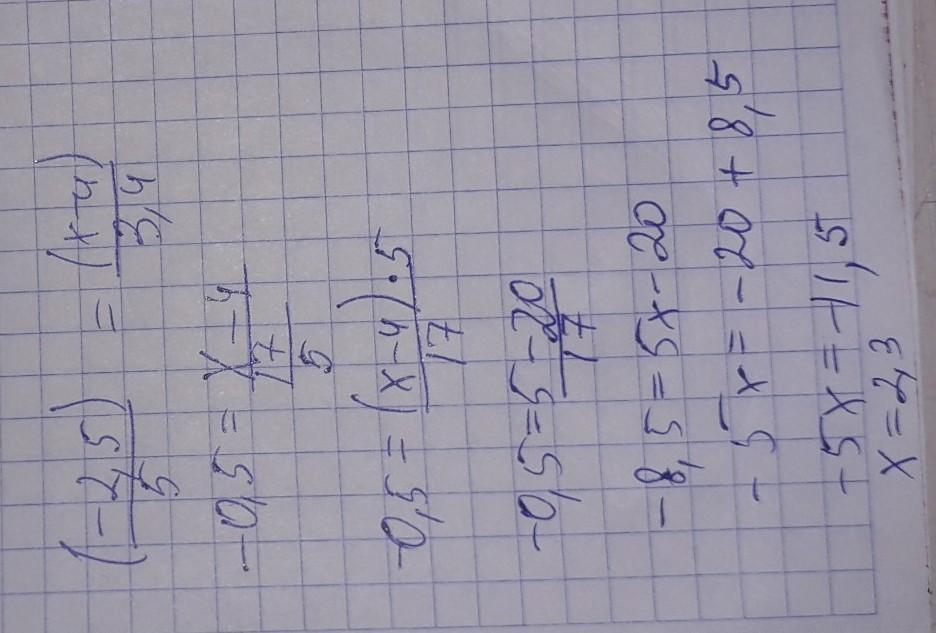 (-2,5)/5 = (x-4)/3,4
-0,5 = x-4/17/5
-0,5 = (x-4)·5/17
-0,5 = 5-20/17
-8,5 = 5x-20
-5x = -20+8,5
-5x = -11,5
x = 2,3